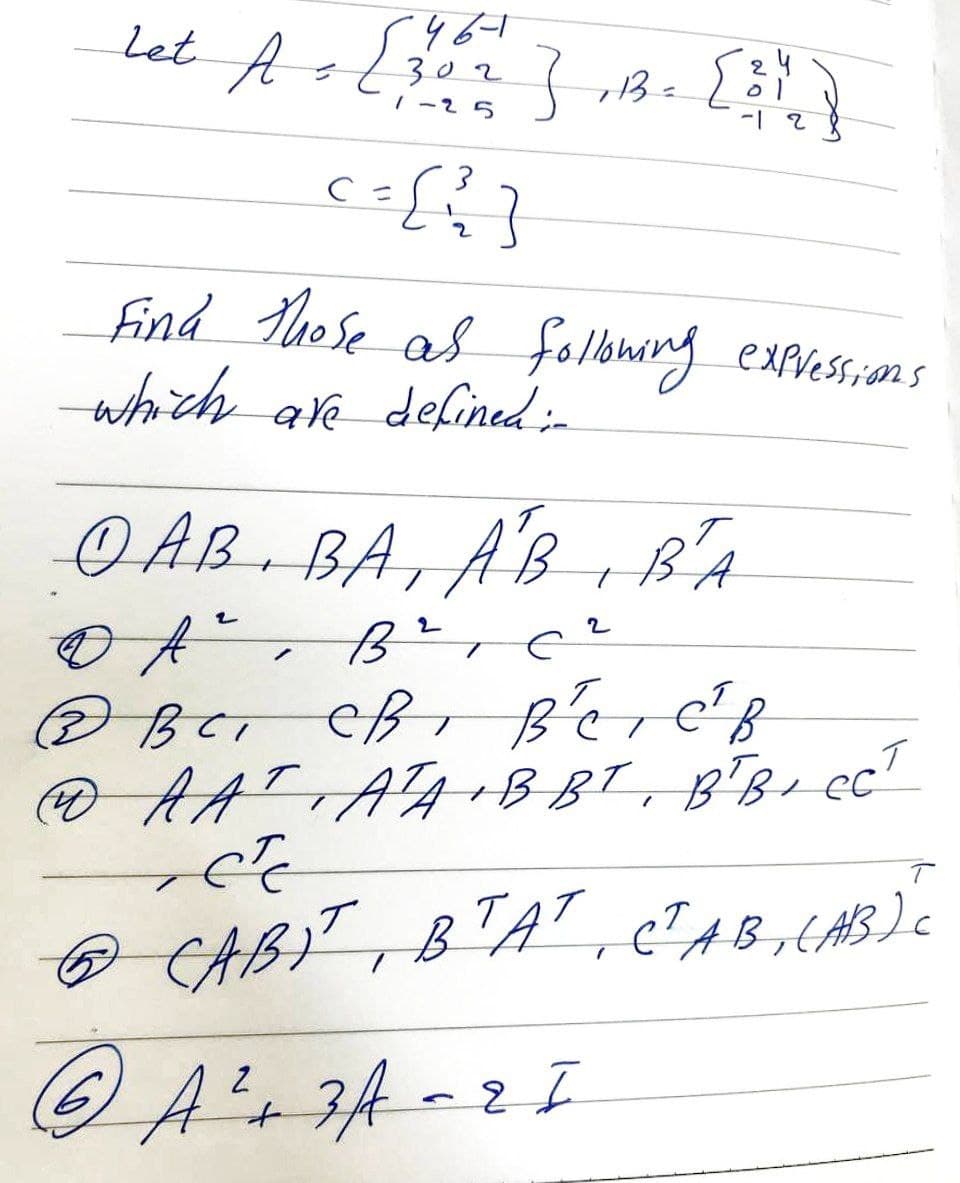 Let A = [ 4 6 -1
3 0 2
1 -2 5 ] , B = [ 2 4
0 1
-1 2 ]
C = [ 3
1
2 ]
Find those as following expressions
which are defined :-
① AB , BA , AᵀB , BᵀA
② A² , B² , C²
③ BC , CB , BᵀC , CᵀB
④ AAᵀ , AᵀA , BBᵀ , BᵀB , CCᵀ
, CᵀC
⑤ (AB)ᵀ , BᵀAᵀ , CᵀAB , (AB)ᵀC
⑥ A² + 3A - 2I